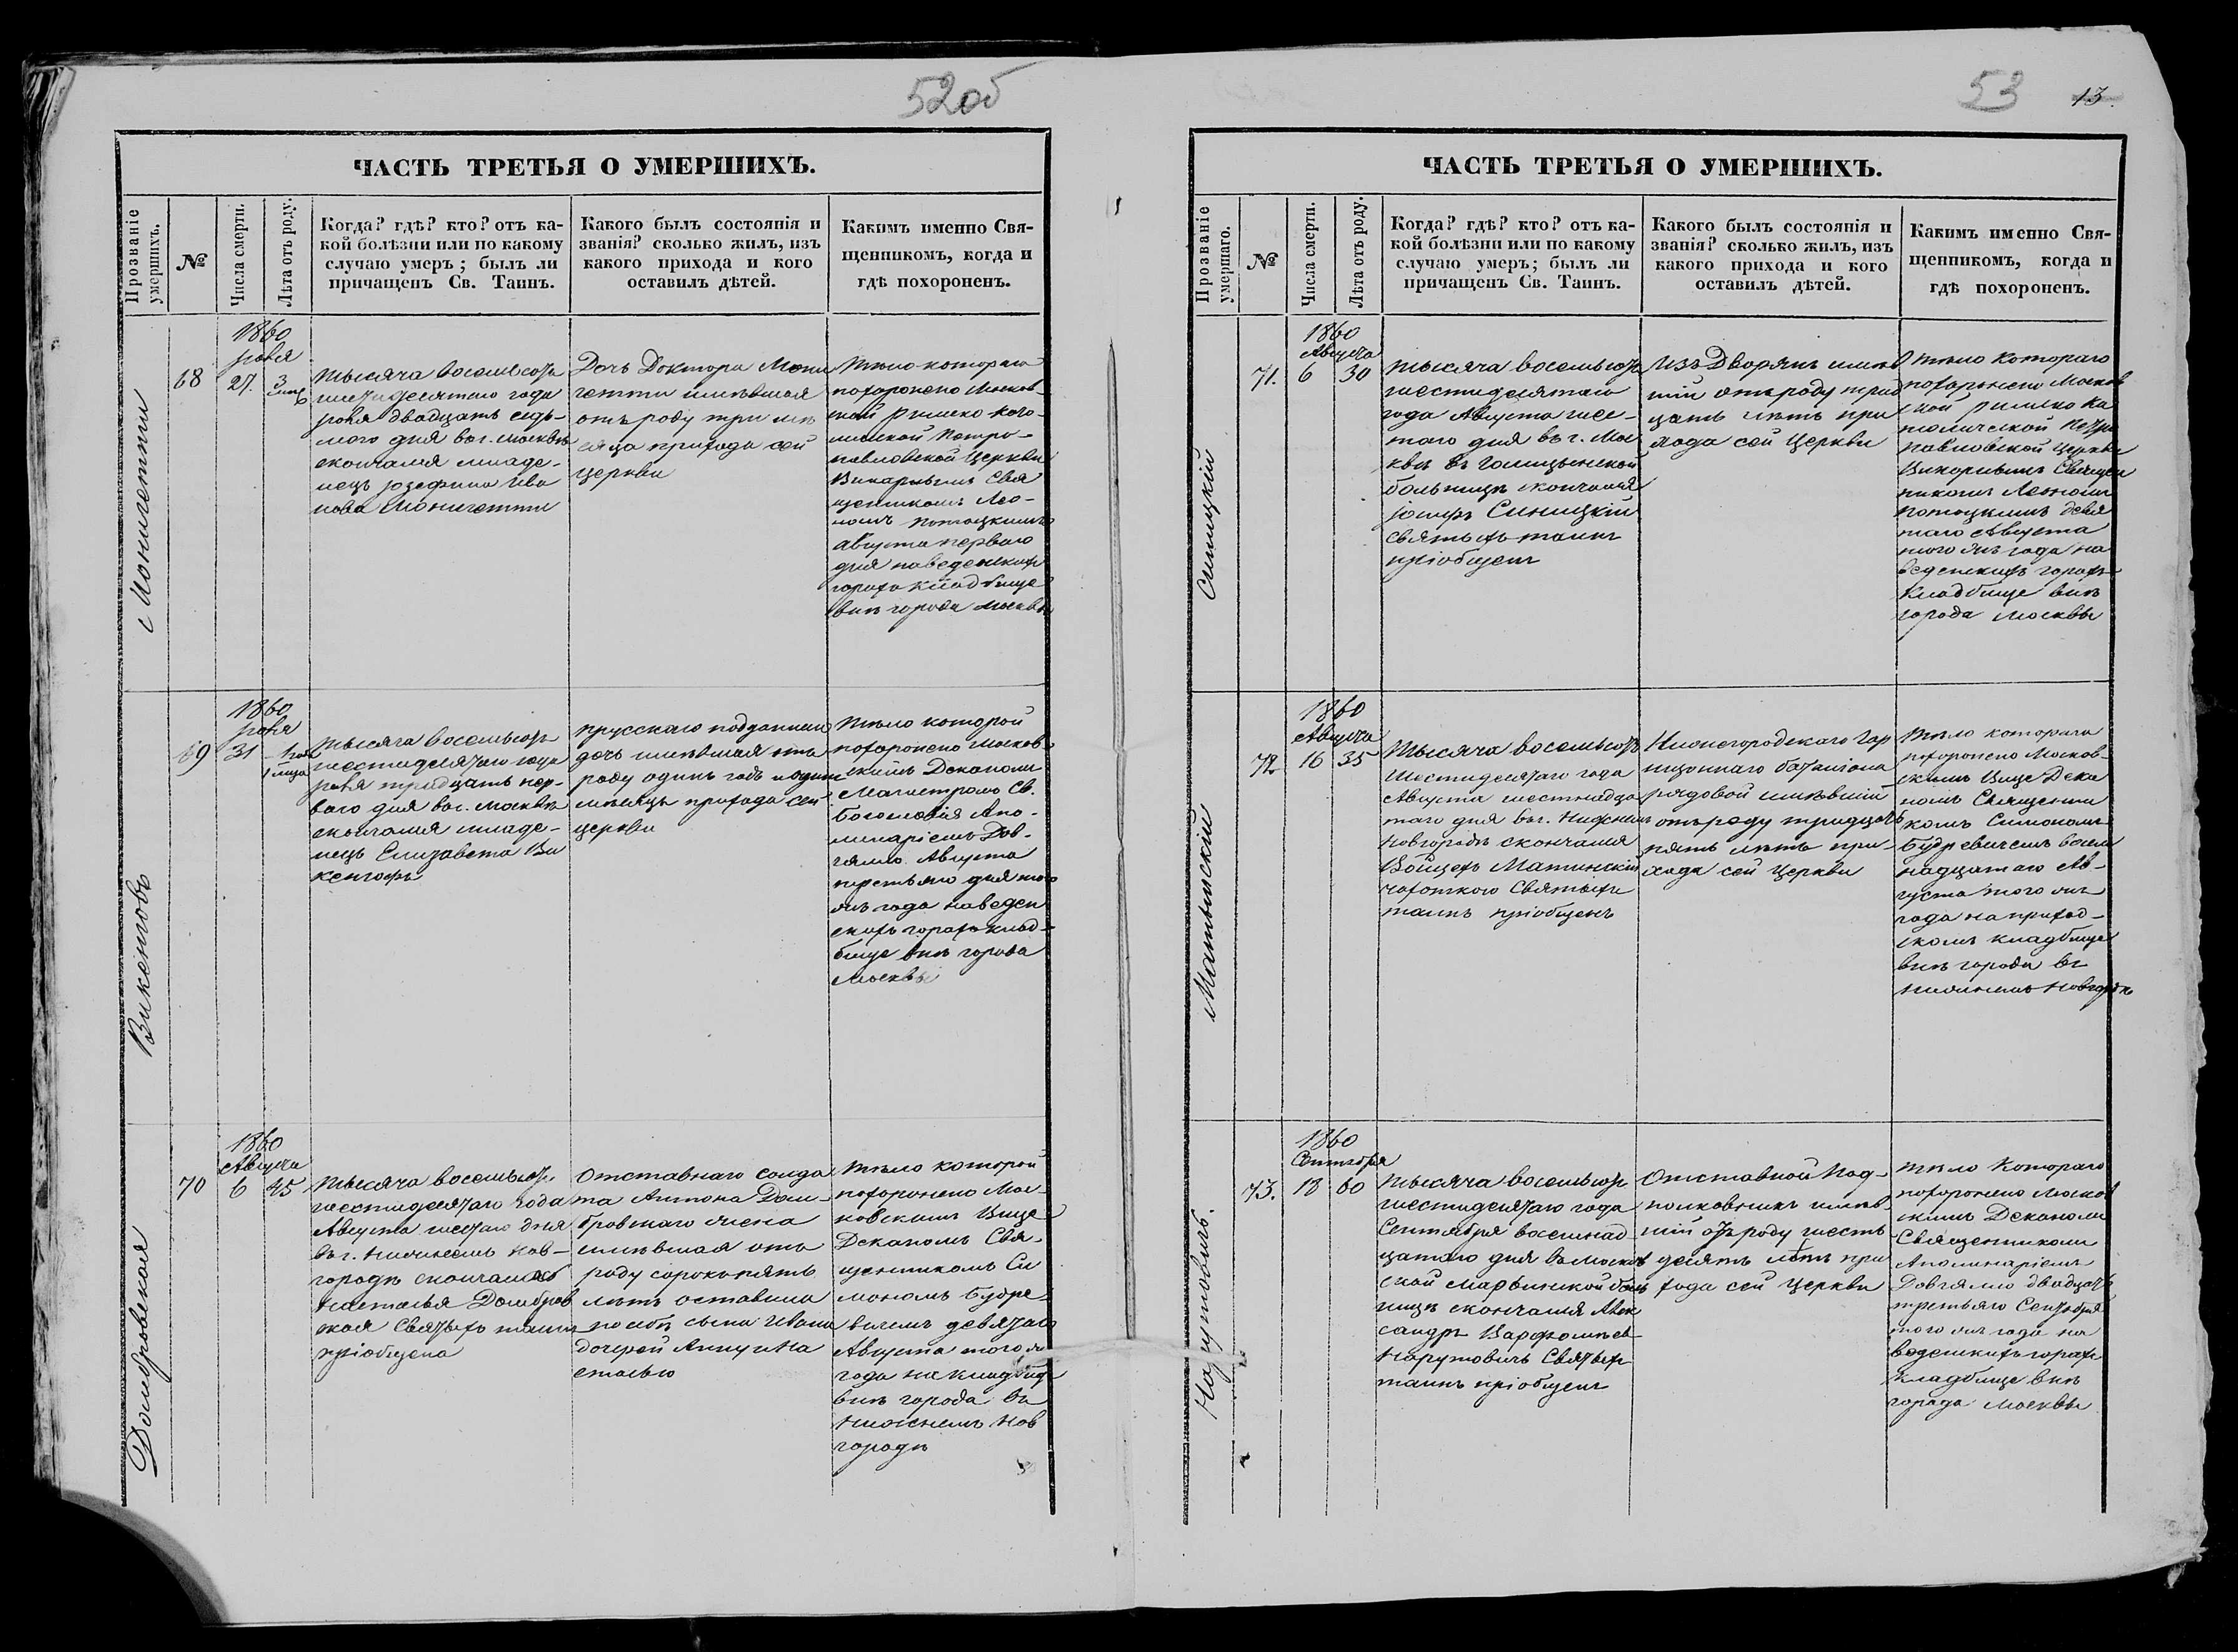 52об
ЧАСТЬ ТРЕТЬЯ О УМЕРШИХЪ.
Прозваніе умершихъ.
№
Числа смерти.
Лѣта отъ роду.
Когда? гдѣ? кто? отъ ка-
кой болѣзни или по какому
случаю умеръ; былъ ли
причащенъ Св. Таинъ.
Какого былъ состоянія и
званія? сколько жилъ, изъ
какого прихода и кого
оставилъ дѣтей.
Какимъ именно Свя-
щенникомъ, когда и
гдѣ похороненъ.
Монигетти
68
1860
27
3
тысяча восемьсотъ
шестидесятаго года
двадцать седь-
мого дня въ г. Москвѣ
скончался младе-
нецъ Іозефина Ива
нова Монигетти
Дочь Доктора Мони
гетти имѣвшая
отъ роду три мѣ
сяца прихода сей
церкви
тѣло котораго
похоронено Москов-
ской Римско Като-
лической Петро-
павловской Церкви
Викарнымъ Свя
щенникомъ Лео-
номъ Потоцкимъ
августа перваго
дня наведенскихъ
горахъ кладбище
внѣ города Москвы
Викенговъ
69
1860
31
1
тысяча восемьсотъ
шестидесятаго года
тридцать пер-
ваго дня въ г. Москвѣ
скончался младе-
нецъ Елизавета Ви
кенгофъ
прусскаго подданнаго
дочь имѣвшая отъ
роду одинъ годъ и одинъ
мѣсяцъ прихода сей
церкви
тѣло которой
похоронено Москов-
скимъ Деканомъ
Магистромъ Св.
Богословія Апо-
линаріемъ Дов-
гялло Августа
третьяго дня того
же года наведен
скихъ горахъ клад-
бище внѣ города
Москвы
Домбровская
70
1860
Августа
6
45
тысяча восемьсотъ
шестидесятаго года
Августа шестаго дня
въ г. Нижнемъ Нов-
городѣ скончалась
Наталья Домбров
ская Святыхъ таинъ
пріобщена
Отставнаго солда
та Антона Дом-
бровскаго жена
имѣвшая отъ
роду сорокъ пять
лѣтъ оставила
по себѣ сына Ивана
дочерей Анну и На
сталью
тѣло которой
похоронено Мос-
ковскимъ Вице
Деканомъ Свя-
щенникомъ Си
мономъ Будре-
вичемъ девятаго
Августа того же
года на кладбище
внѣ города въ
Нижнемъ Нов
городѣ
53
13.
ЧАСТЬ ТРЕТЬЯ О УМЕРШИХЪ.
Прозваніе умершаго.
№
Числа смерти.
Лѣта отъ роду.
Когда? гдѣ? кто? отъ ка-
кой болѣзни или по какому
случаю умеръ; былъ ли
причащенъ Св. Таинъ.
Какого былъ состоянія и
званія? сколько жилъ, изъ
какого прихода и кого
оставилъ дѣтей.
Какимъ именно Свя-
щенникомъ, когда и
гдѣ похороненъ.
Синицкій
71.
1860
Августа
6
30
тысяча восемьсотъ
шестидесятаго
года Августа шес-
таго дня въ г. Мос
квѣ въ Голицынской
больницѣ скончался
Іосифъ Синицкій
Святыхъ таинъ
пріобщенъ
Изъ Дворянъ имѣв
шій отъ роду трид
цать лѣтъ при
хода сей Церкви
тѣло котораго
похоронено Москов
ской Римско Ка
толической Петро
павловской Церкви
Викарнымъ Священ
никомъ Леономъ
Потоцкимъ девя
таго Августа
того же года на
веденскихъ горахъ
кладбище внѣ
города Москвы
Матинскій
72
1860
Августа
16
35
Тысяча восемьсотъ
Шестидесятаго года
Августа шестнадца
таго дня въ г. Нижнемъ
Новгородѣ скончался
Войцехъ Матинскій
чахоткою Святыхъ
таинъ пріобщенъ
Нижегородскаго Гар
низоннаго баталіона
рядовой имѣвшій
отъ роду тридцать
пять лѣтъ при-
хода сей Церкви
тѣло котораго
похоронено Москов-
скимъ Вице Дека
номъ Священни
комъ Симономъ
Будревичемъ восем
надцатаго Ав-
густа того же
года на приход-
скомъ кладбище
внѣ города въ
Нижнемъ Новгородѣ
Нарутовичъ.
73.
1860
Сентября
18
60
тысяча восемьсотъ
шестидесятаго года
Сентября восемнад
цатаго дня въ Москов
ской Маріинской боль
ницѣ скончался Алек
сандръ Варфоломѣев
Нарутовичъ Святыхъ
таинъ пріобщенъ
Отставной Под-
полковникъ имѣв-
шій отъ роду шесть
десятъ лѣтъ при
хода сей Церкви
тѣло котораго
похоронено Москов
скимъ Деканомъ
Священникомъ
Аполинаріемъ
Довгялло двадцать
третьяго Сентября
того же года на
веденскихъ горахъ
кладбище внѣ
города Москвы